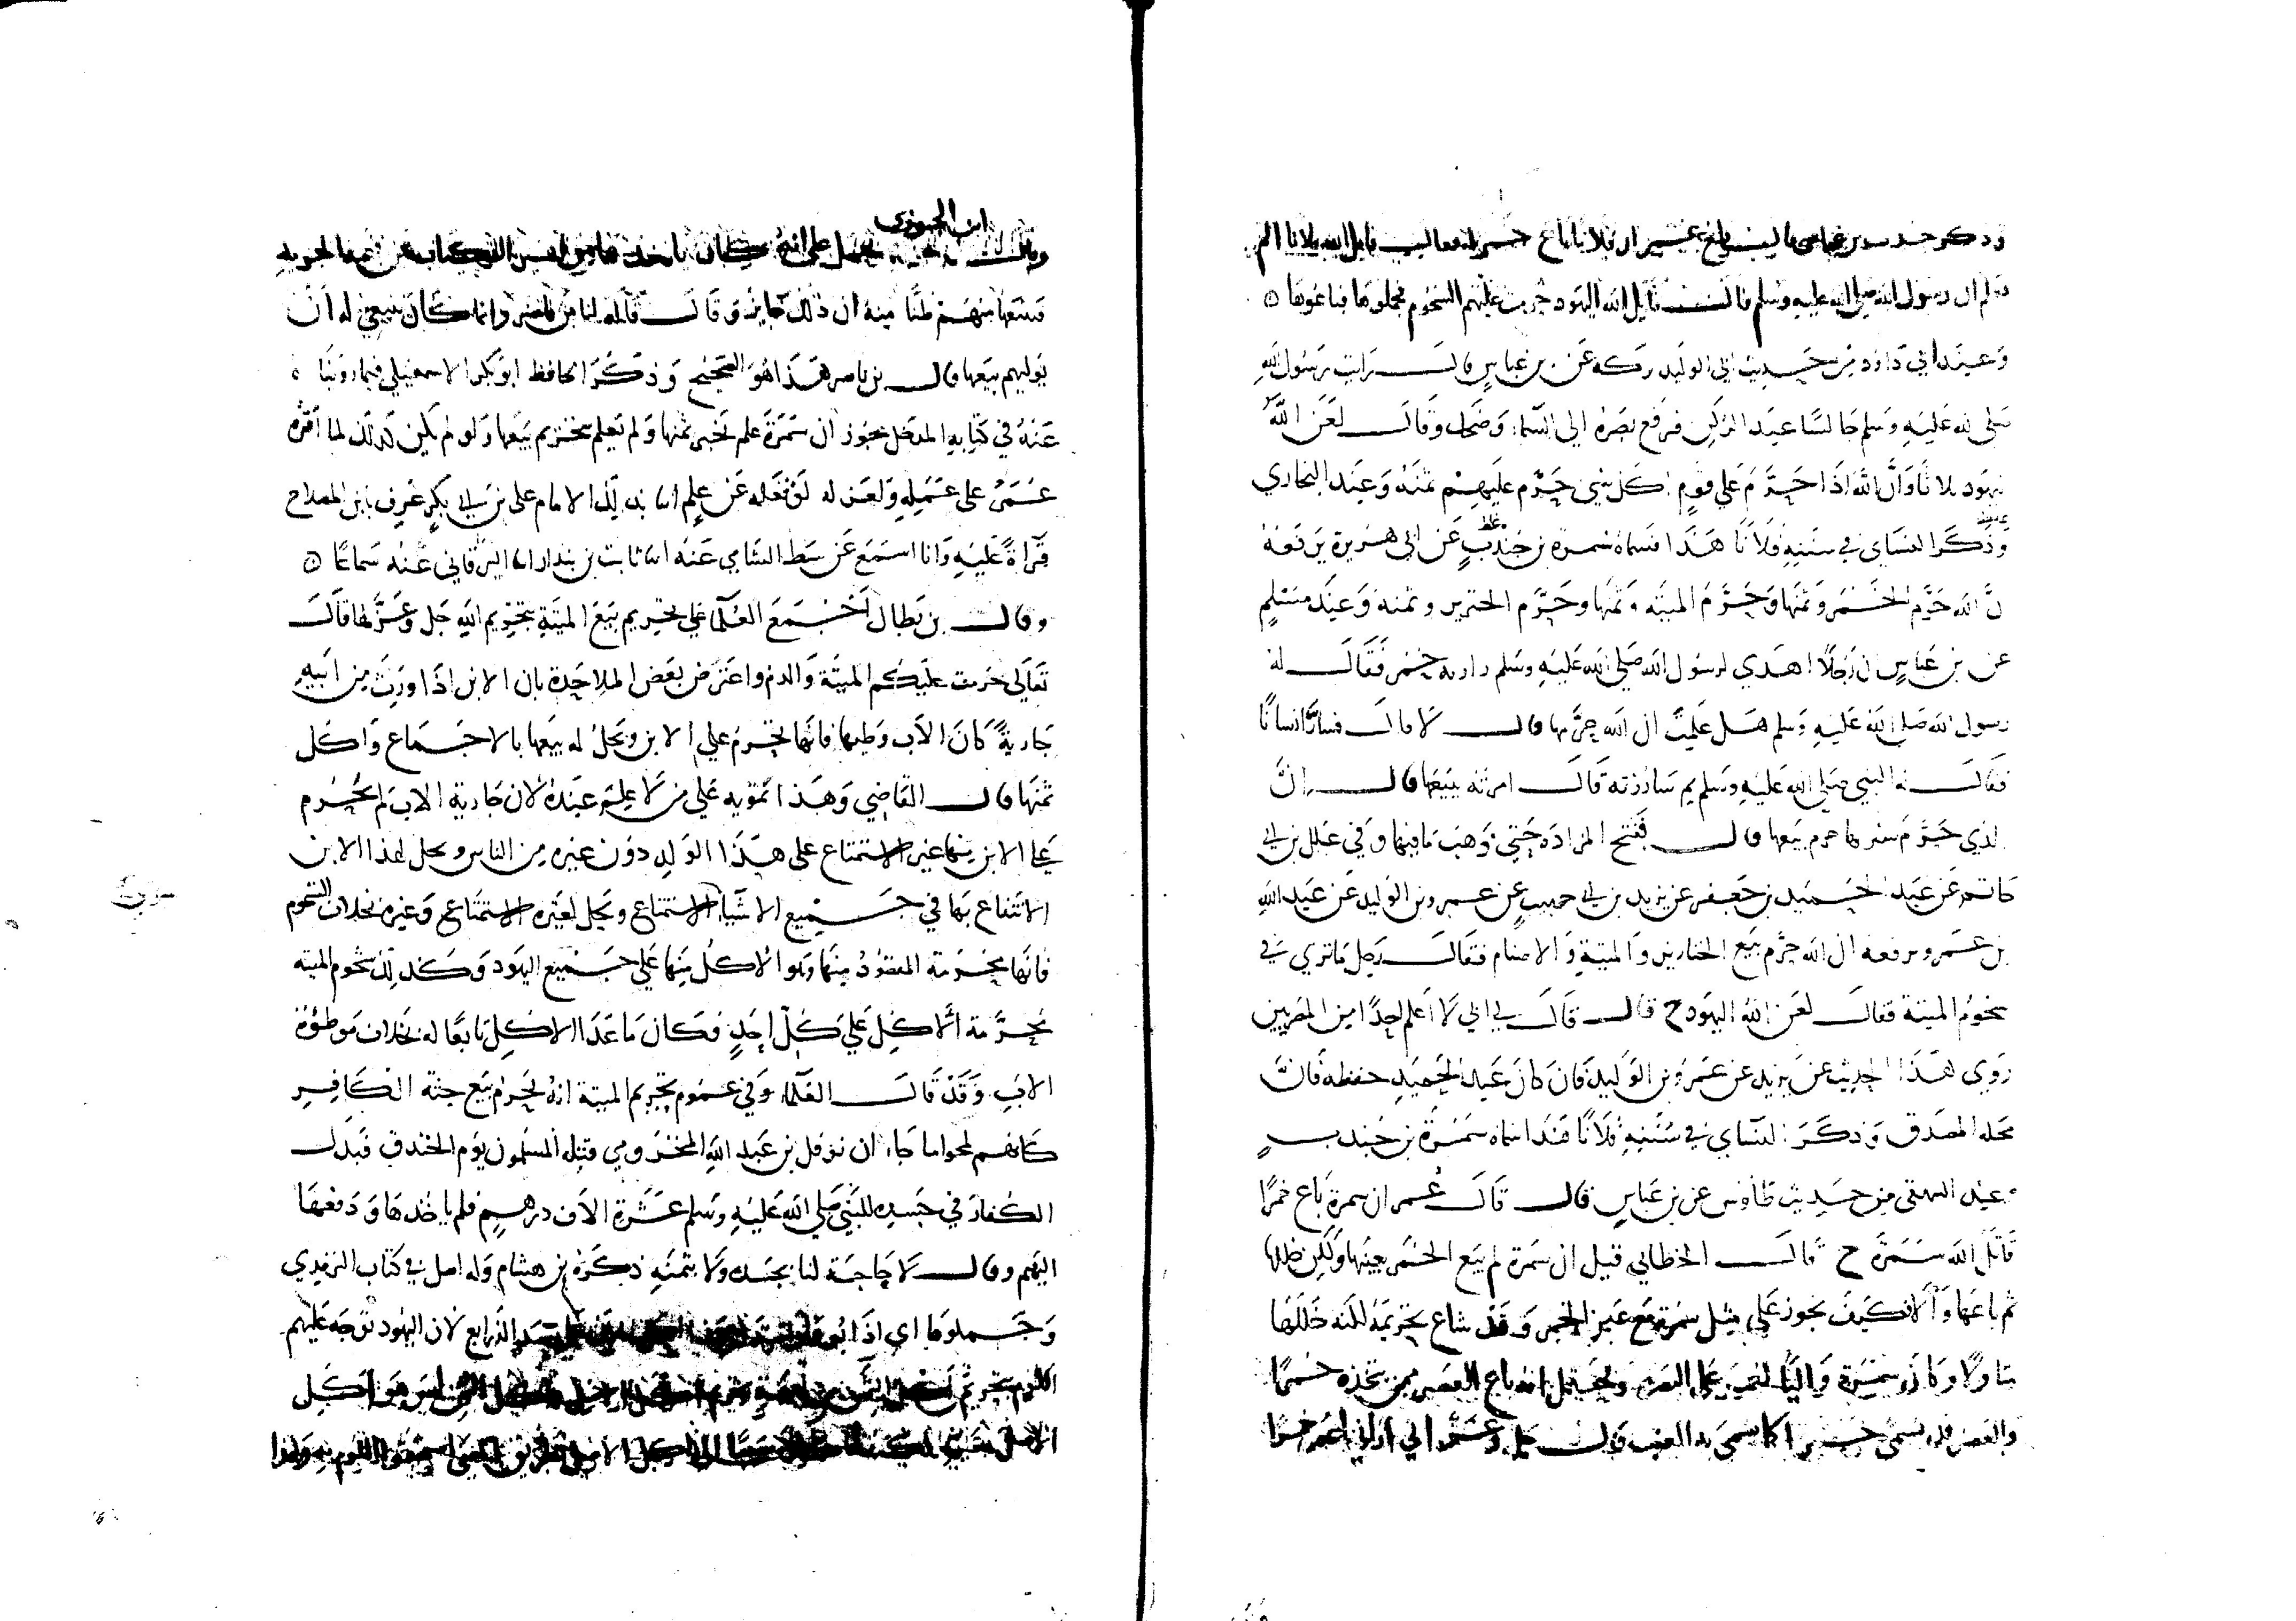 وذكر حديث بن عباس قال بلغ عمر ان فلانا باع خمرا فقال قاتل الله فلانا الم
يعلم ان رسول الله صلى الله عليه وسلم قال قاتل الله اليهود حرمت عليهم الشحوم فجملوها فباعوها
وَعند ابي داود من حديث ابي الوليد بركه عن بن عباس قال رايت رسول الله
صلى الله عليه وسلم جالسا عند الركن فرفع بصره الى السماء وضحك وقال لعن الله
يهود ثلاثا وان الله اذا حرم على قوم اكل شي حرم عليهم ثمنه وعند البخاري
وذكر النساي في سننه فلانا هذا فسماه سمرة بن جندب عن ابي هريرة يرفعه
ن الله حرم الخمر وثمنها وحرم الميتة وثمنها وحرم الخنزير وثمنه وعند مسلم
عن بن عباس ان رجلا اهدي لرسول الله صلى الله عليه وسلم راوية خمر فقال له
رسول الله صلى الله عليه وسلم هل علمت ان الله حرمها قال لا قال فسارّ انسانا
فقال له النبي صلى الله عليه وسلم بم ساررته قال امرته ببيعها قال ان
لذي حرم شربها حرم بيعها قال ففتح المزادة حتى ذهب ما فيها وفي علل بن ابي
حاتم عن عبد الحميد بن جعفر عن يزيد بن ابي حبيب عن عمرو بن الوليد عن عبد الله
بن عمرو يرفعه ان الله حرم بيع الخنازير والميتة والاصنام فقال رجل ما ترى في
شحوم الميتة فقال لعن الله اليهود ح قال قال لي ابي لا اعلم احدا من المصريين
روى هذا الحديث عن يزيد عن عمرو بن الوليد فان كان عبد الحميد حفظه فان
محله الصدق وذكر النساي في سننه فلانا هذا سماه سمرة بن جندب
وعند البيهقي من حديث طاوس عن بن عباس قال قال عمر ان سمرة باع خمرا
قاتل الله سمرة ح قال الخطابي قيل ان سمرة لم يبع الخمر بعينها ولكن خللها
ثم باعها والا فكيف يجوز على مثل سمرة بيع عين الخمر وقد شاع تحريمه لكنه خللها
متاولا وكان سمرة واليا لعمر على البصرة ويحتمل انه باع العصير ممن يتخذه خمرا
والعصير قد يسمى خمرا كما سمي به العنب قال عز وجل اني اراني اعصر خمرا
وقال ابن الجوزي يحتمل على انه كان ياخذها من اهل الكتاب عن قيمة الجزية
فيبيعها منهم ظنا منه ان ذلك جايز وقال قاله لنا بن ناصر وانما كان ينبغي له ان
يوليهم بيعها قال بن ناصر هذا هو الصحيح وذكر الحافظ ابو بكر الاسمعيلي فيما رويناه
عنه في كتابه المدخل يجوز ان سمرة علم تحريمها ولم يعلم بتحريم بيعها ولو لم يكن كذلك لما اقره
عمر على عمله ولعزله لو فعله عن علم انبا بذلك الامام على بن ابي بكر عرف بابن الصلاح
قراة عليه وانا اسمع عن سبط السلفي عنه انبا ثابت بن بندار انبا البرقاني عنه سماعا
وقال بن بطال اجمع العلما على تحريم بيع الميتة بتحريم الله جل وعز لها قال
تعالى حرمت عليكم الميتة والدم واعترض بعض الملاحدة بان الابن اذا ورث من ابيه
جارية كان الاب وطيها فانها تحرم على الابن ويحل له بيعها بالاجماع واكل
ثمنها قال القاضي وهذا تمويه على من لا علم عنده لان جارية الاب لم يحرم
على الابن منها غير الاستمتاع على هذا الولد دون غيره من الناس ويحل لهذا الابن
الانتفاع بها في جميع الاشيا الاستمتاع ويحل لغيره الاستمتاع وغيره بخلاف الشحوم
فانها محرمة المقصود منها وهو الاكل منها على جميع اليهود وكذلك شحوم الميتة
محرمة الاكل على كل احد فكان ما عدا الاكل تابعا له بخلاف موطوة
الاب وقد قال العلما وفي عموم تحريم الميتة انه يحرم بيع جثة الكافر
كانهم لمحوا ما جا ان نوفل بن عبد الله المخزومي قتله المسلمون يوم الخندق فبذل
الكفار في جسده للنبي صلى الله عليه وسلم عشرة الاف درهم فلم ياخذها ودفعها
اليهم وقال لا حاجة لنا بجسده ولا بثمنه ذكره بن هشام وله اصل في كتاب الترمذي
وجملوها اي اذابوها الذرايع لان اليهود توجه عليهم
اللوم بتحريم هو اكل
الاصل